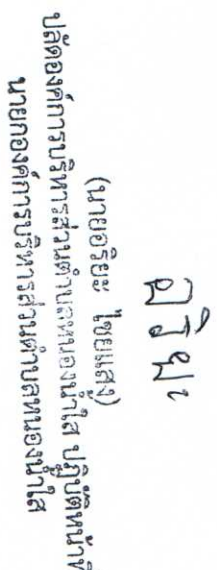 อริยะ
(นายอริยะ ไชยแสง)
ปลัดองค์การบริหารส่วนตำบลหนองน้ำใส ปฏิบัติหน้าที่
นายกองค์การบริหารส่วนตำบลหนองน้ำใส